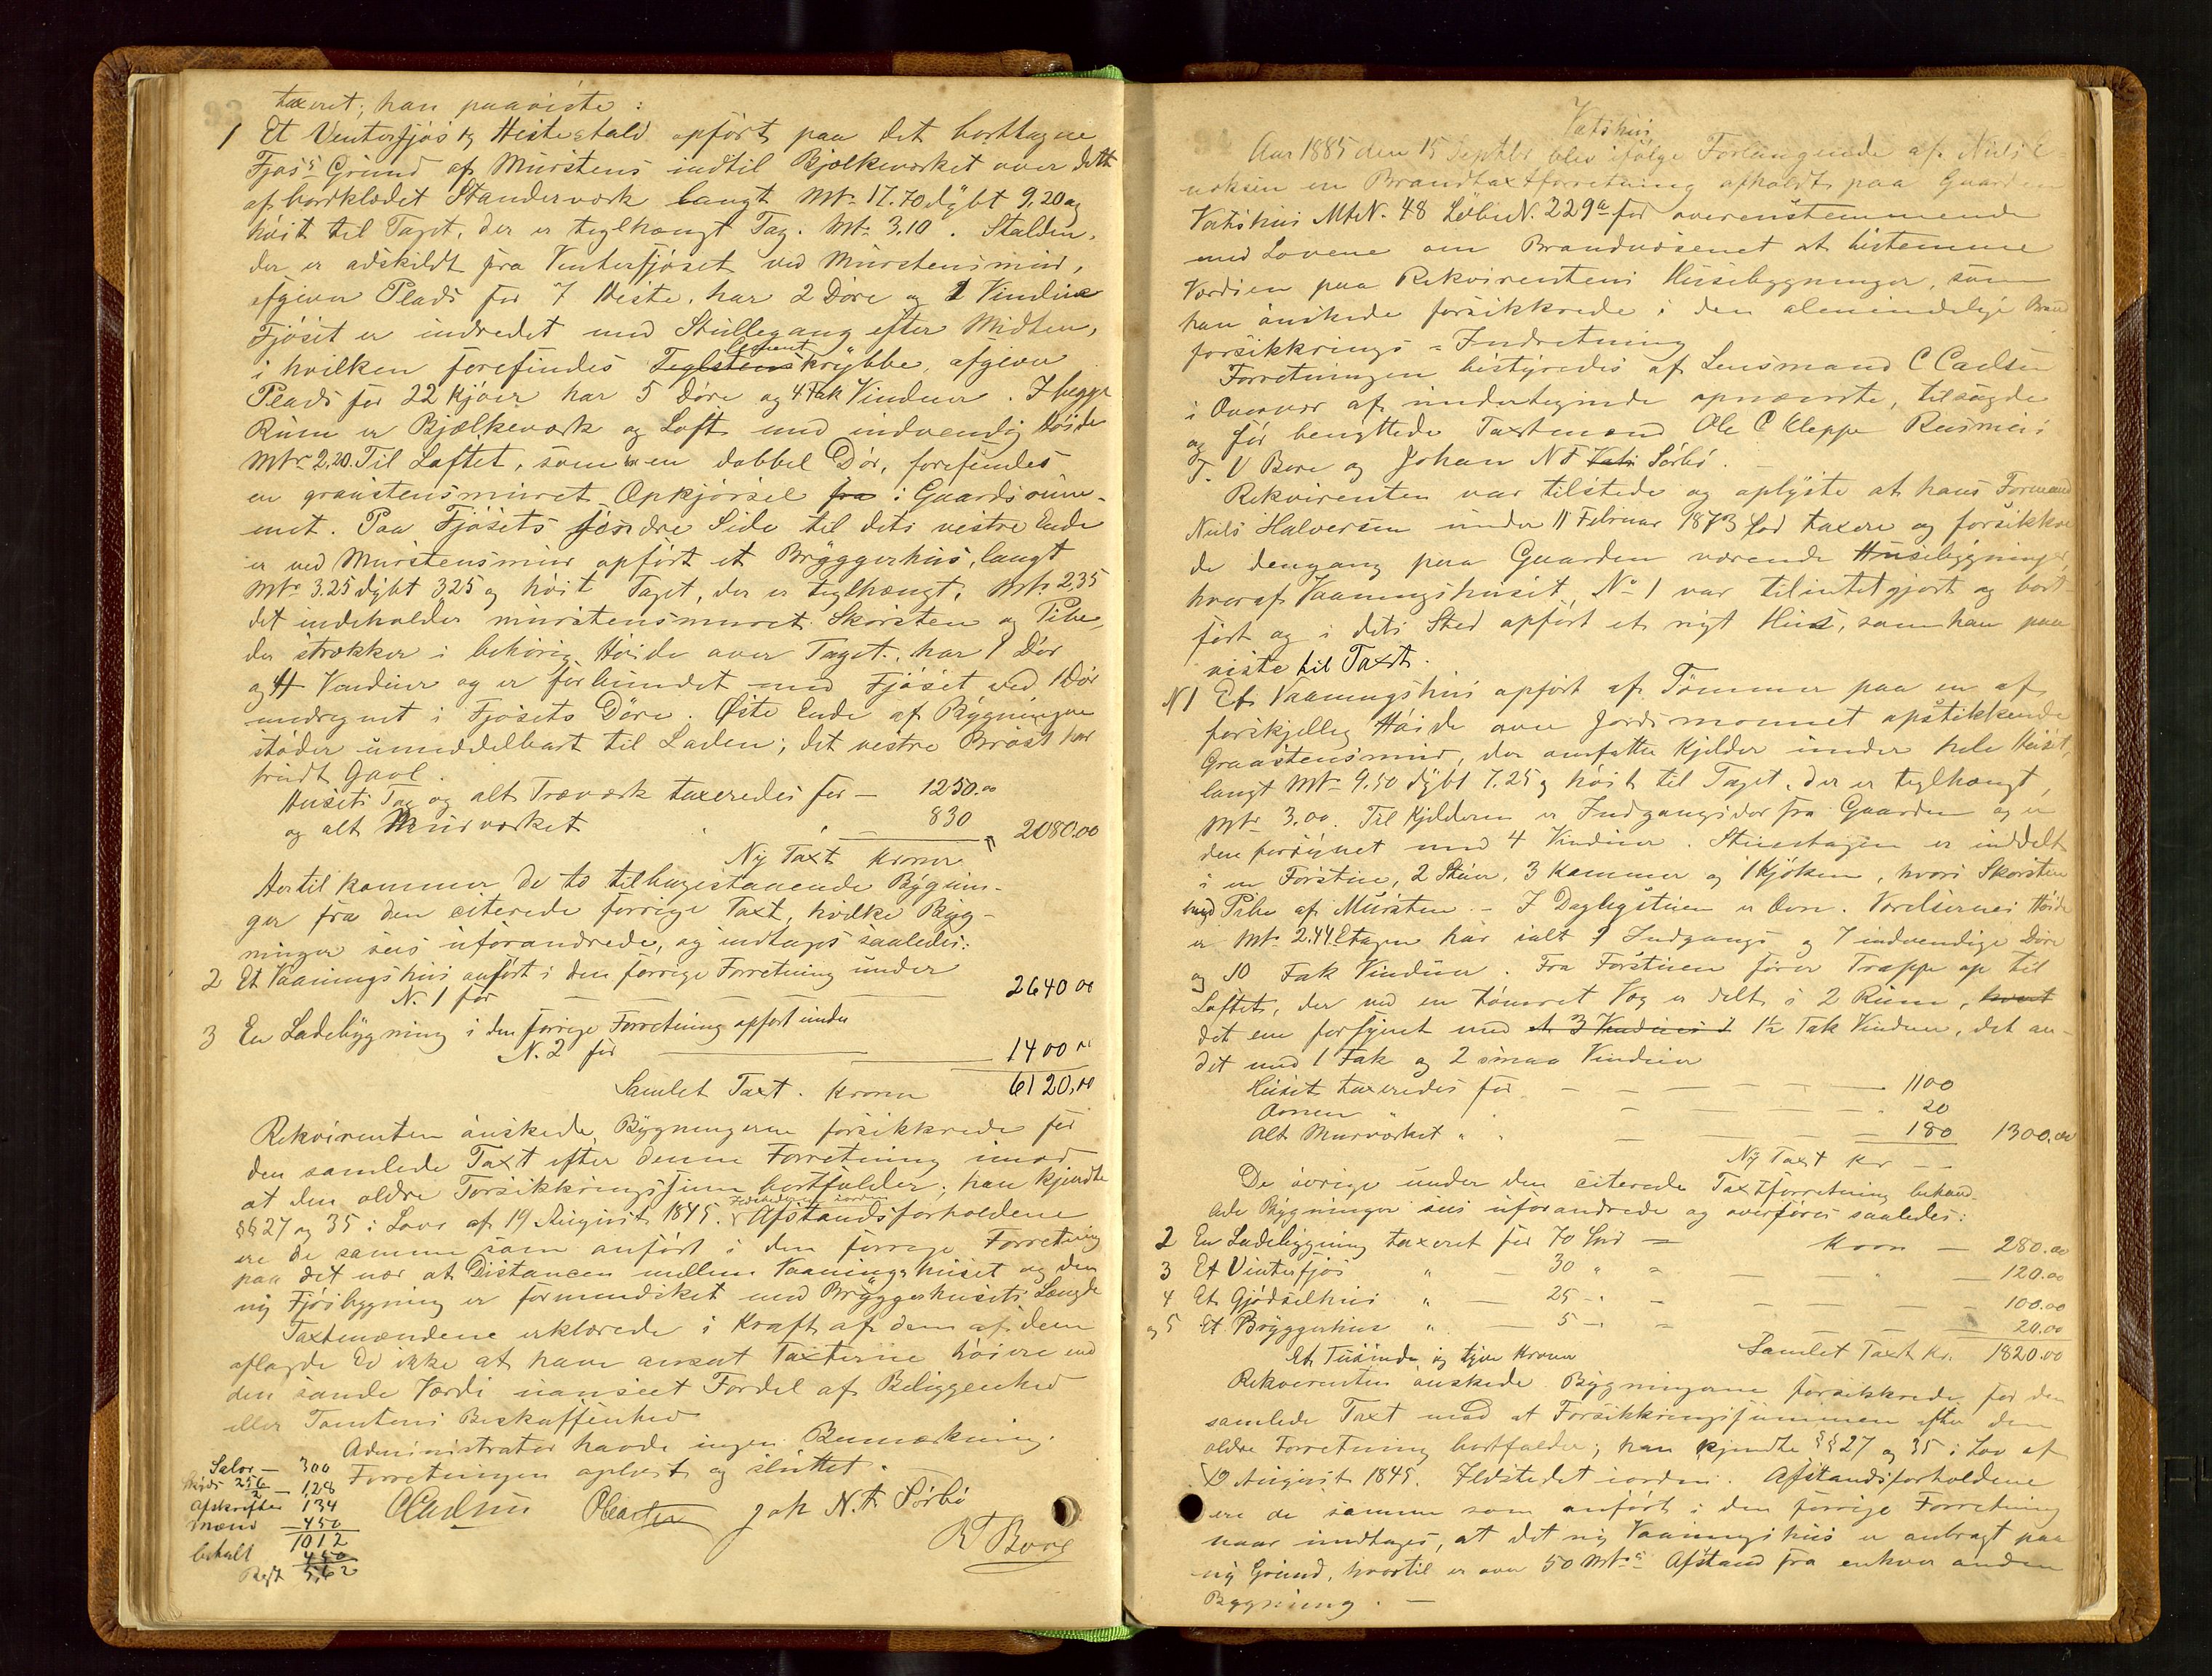 taxeret; han paaviste:
1 Et Vinterfjøs og Hestestald opført paa det borttagne
Fjøs's Grund af Mursten indtil Bjelkeværket over dette
af bordklædet Standerværk langt Mtr 17.70 dybt 9.20 og
høit til Taget, der er teglhængt Tag. Mtr 3.10. Stalden,
der er adskildt fra Vinterfjøset ved Murstensmur,
afgiver Plads for 7 Heste, har 2 Døre og 1 Vindue
Fjøset er indredet med Stullegang efter Midten,
i hvilken forefindes Teglstens Cement krybbe, afgiver
Plads for 22 Kjøer har 5 Døre og 4 Fak Vinduer. I begge
Rum er Bjælkeværk og Loft med indvendig Høide
Mtr 2,20. Til Loftet, som har en dobbel Dør, forefindes
en graastensmuret Opkjørsel fra i Gaardsrum-
met. Paa Fjøsets søndre Side til dets vestre Ende
er ved Murstensmur opført et Bryggerhus, langt
Mtr 3.25 dybt 325 og høit Taget, der er teglhængt, Mtr 2,35
det indeholder murstensmuret Skorsten og Pibe,
der strækker i behørig Høide over Taget, har 1 Dør
og 4 Vinduer og er forbundet med Fjøset ved 1 Dør
medregnet i Fjøsets Døre. Øste Ende af Bygningen
støder umiddelbart til Laden; det vestre Brøst har
brudt Gavl.
Husets Tag og alt Træværk taxeredes for — 1250.00
og alt Murværket " " — 830 " 2080.00
Ny Taxt Kroner
Hertil kommer de to tilbagestaaende Bygnin-
ger fra den citerede forrige Taxt, hvilke Byg-
ninger sees uforandrede, og indtages saaledes:
2 Et Vaaningshus anført i den forrige Forretning under
N. 1 for — — — 2640 00
3 En Ladebygning i den forrige Forretning opført under
N. 2 for — — 1400 00
Samlet Taxt. Kroner 6120,00
Rekvirenten ønskede Bygningerne forsikkrede for
den samlede Taxt efter denne Forretning imod
at den ældre Forsikkringssum bortfalder; han kjendte
§§ 27 og 35 i Lov af 19 August 1845. Ildstederne iorden Afstandsforholdene
ere de samme som anført i den forrige Forretning
paa det nær at Distancen mellem Vaaningshuset og den
ny Fjøsbygning er formindsket med Bryggerhusets Længde
Taxtmændene erklærede i Kraft af den af dem
aflagde Ed ikke at have ansat Taxterne høiere end
den sande Værdi uanseet Fordel af Beliggenhed
eller Tomtens Beskaffenhed
Administrator havde ingen Bemærkning.
Forretningen oplæst og sluttet.
Salær — 300
256/2 — 1,28
Afskrifter 134
Mænd — 450
1012
betalt 450
Rest 5,62
CCarlsen Joh N. T. Sørbø
R T Bore
Vatshus
Aar 1885 den 15 Septbr blev ifølge Forlangende af Niels E-
noksen en Brandtaxtforretning afholdt paa Gaarden
Vatshus Mt N. 48 Løbe N. 229a for overenstemmende
med Lovene om Brandvæsenet at bestemme
Værdien paa Rekvirentens Husebygninger, som
han ønskede forsikkrede i den almindelige Brand
forsikkrings-Indretning
Forretningen bestyredes af Lensmand C Carlsen
i Overvær af undertegnede opnævnte, tilsagde
og før benyttede Taxtmænd Ole C Kleppe Rasmus
T. V Bore og Johan N T Vats Sørbø. —
Rekvirenten var tilstede og oplyste at hans Formand
Niels Halvorsen under 11 Februar 1873 lod taxere og forsikkre
de dengang paa Gaarden værende Husebygninger,
hvoraf Vaaningshuset No 1 var tilintetgjort og bort-
ført og i dets Sted opført et nyt Hus, som han paa
viste til Taxt.
N 1 Et Vaaningshus opført af Tømmer paa en af
forskjellig Høide over Jordsmonnet opstikkende
Graastensmur, der omfatter Kjelder under hele Huset,
langt Mtr 9.50 dybt 7.25 og høit til Taget, der er teglhængt,
Mtr 3.00. Til Kjelderen er Indgangsdør fra Gaarden og er
den forsynet med 4 Vinduer. Stueetagen er inddelt
i en Forstue, 2 Stuer, 3 Kammer og 1 Kjøken, hvori Skorsten
med Pibe af Mursten. — I Dagligstuen er Ovn. Værelsernes Høide
er Mtr 2.44. Etagen har ialt 1 Indgangs og 7 indvendige Døre
og 10 Fak Vinduer. Fra Forstuen fører Trappe op til
Loftet, der ved en tømret Væg er delt i 2 Rum, hvert
det ene forsynet med et 3 Vindues 1 1½ Fak Vinduer, det an-
det med 1 Fak og 2 smaa Vinduer
Huset taxeredes for — — — 1100
Ovnen " — — — 20
Alt Murværket " " — — — 180 1300.00
Ny Taxt Kr — —
De øvrige under den citerede Taxtforretning behand-
lede Bygninger sees uforandrede og overføres saaledes:
2 En Ladebygning taxeret for 70 Spd = Kron — 280.00
3 Et Vinterfjøs " — 30 " = — " — 120.00
4 Et Gjødselhus " — 25 — " = — — — 100.00
og 5 Et Bryggerhus " — 5 — " = — — — 20.00
Et Tusinde og tyve Kroner Samlet Taxt Kr. 1820.00
Rekvirenten ønskede Bygningerne forsikkrede for den
samlede Taxt mod at Forsikkringssummen efter den
ældre Forretning bortfalder; han kjendte §§ 27 og 35 i Lov af
19 August 1845. Ildstedet iorden. Afstandsforholdene
ere de samme som anført i den forrige Forretning
naar undtages, at det ny Vaaningshus er anbragt paa
ny Grund, hvortil er over 50 Mtr's Afstand fra enhver anden
Bygning. —